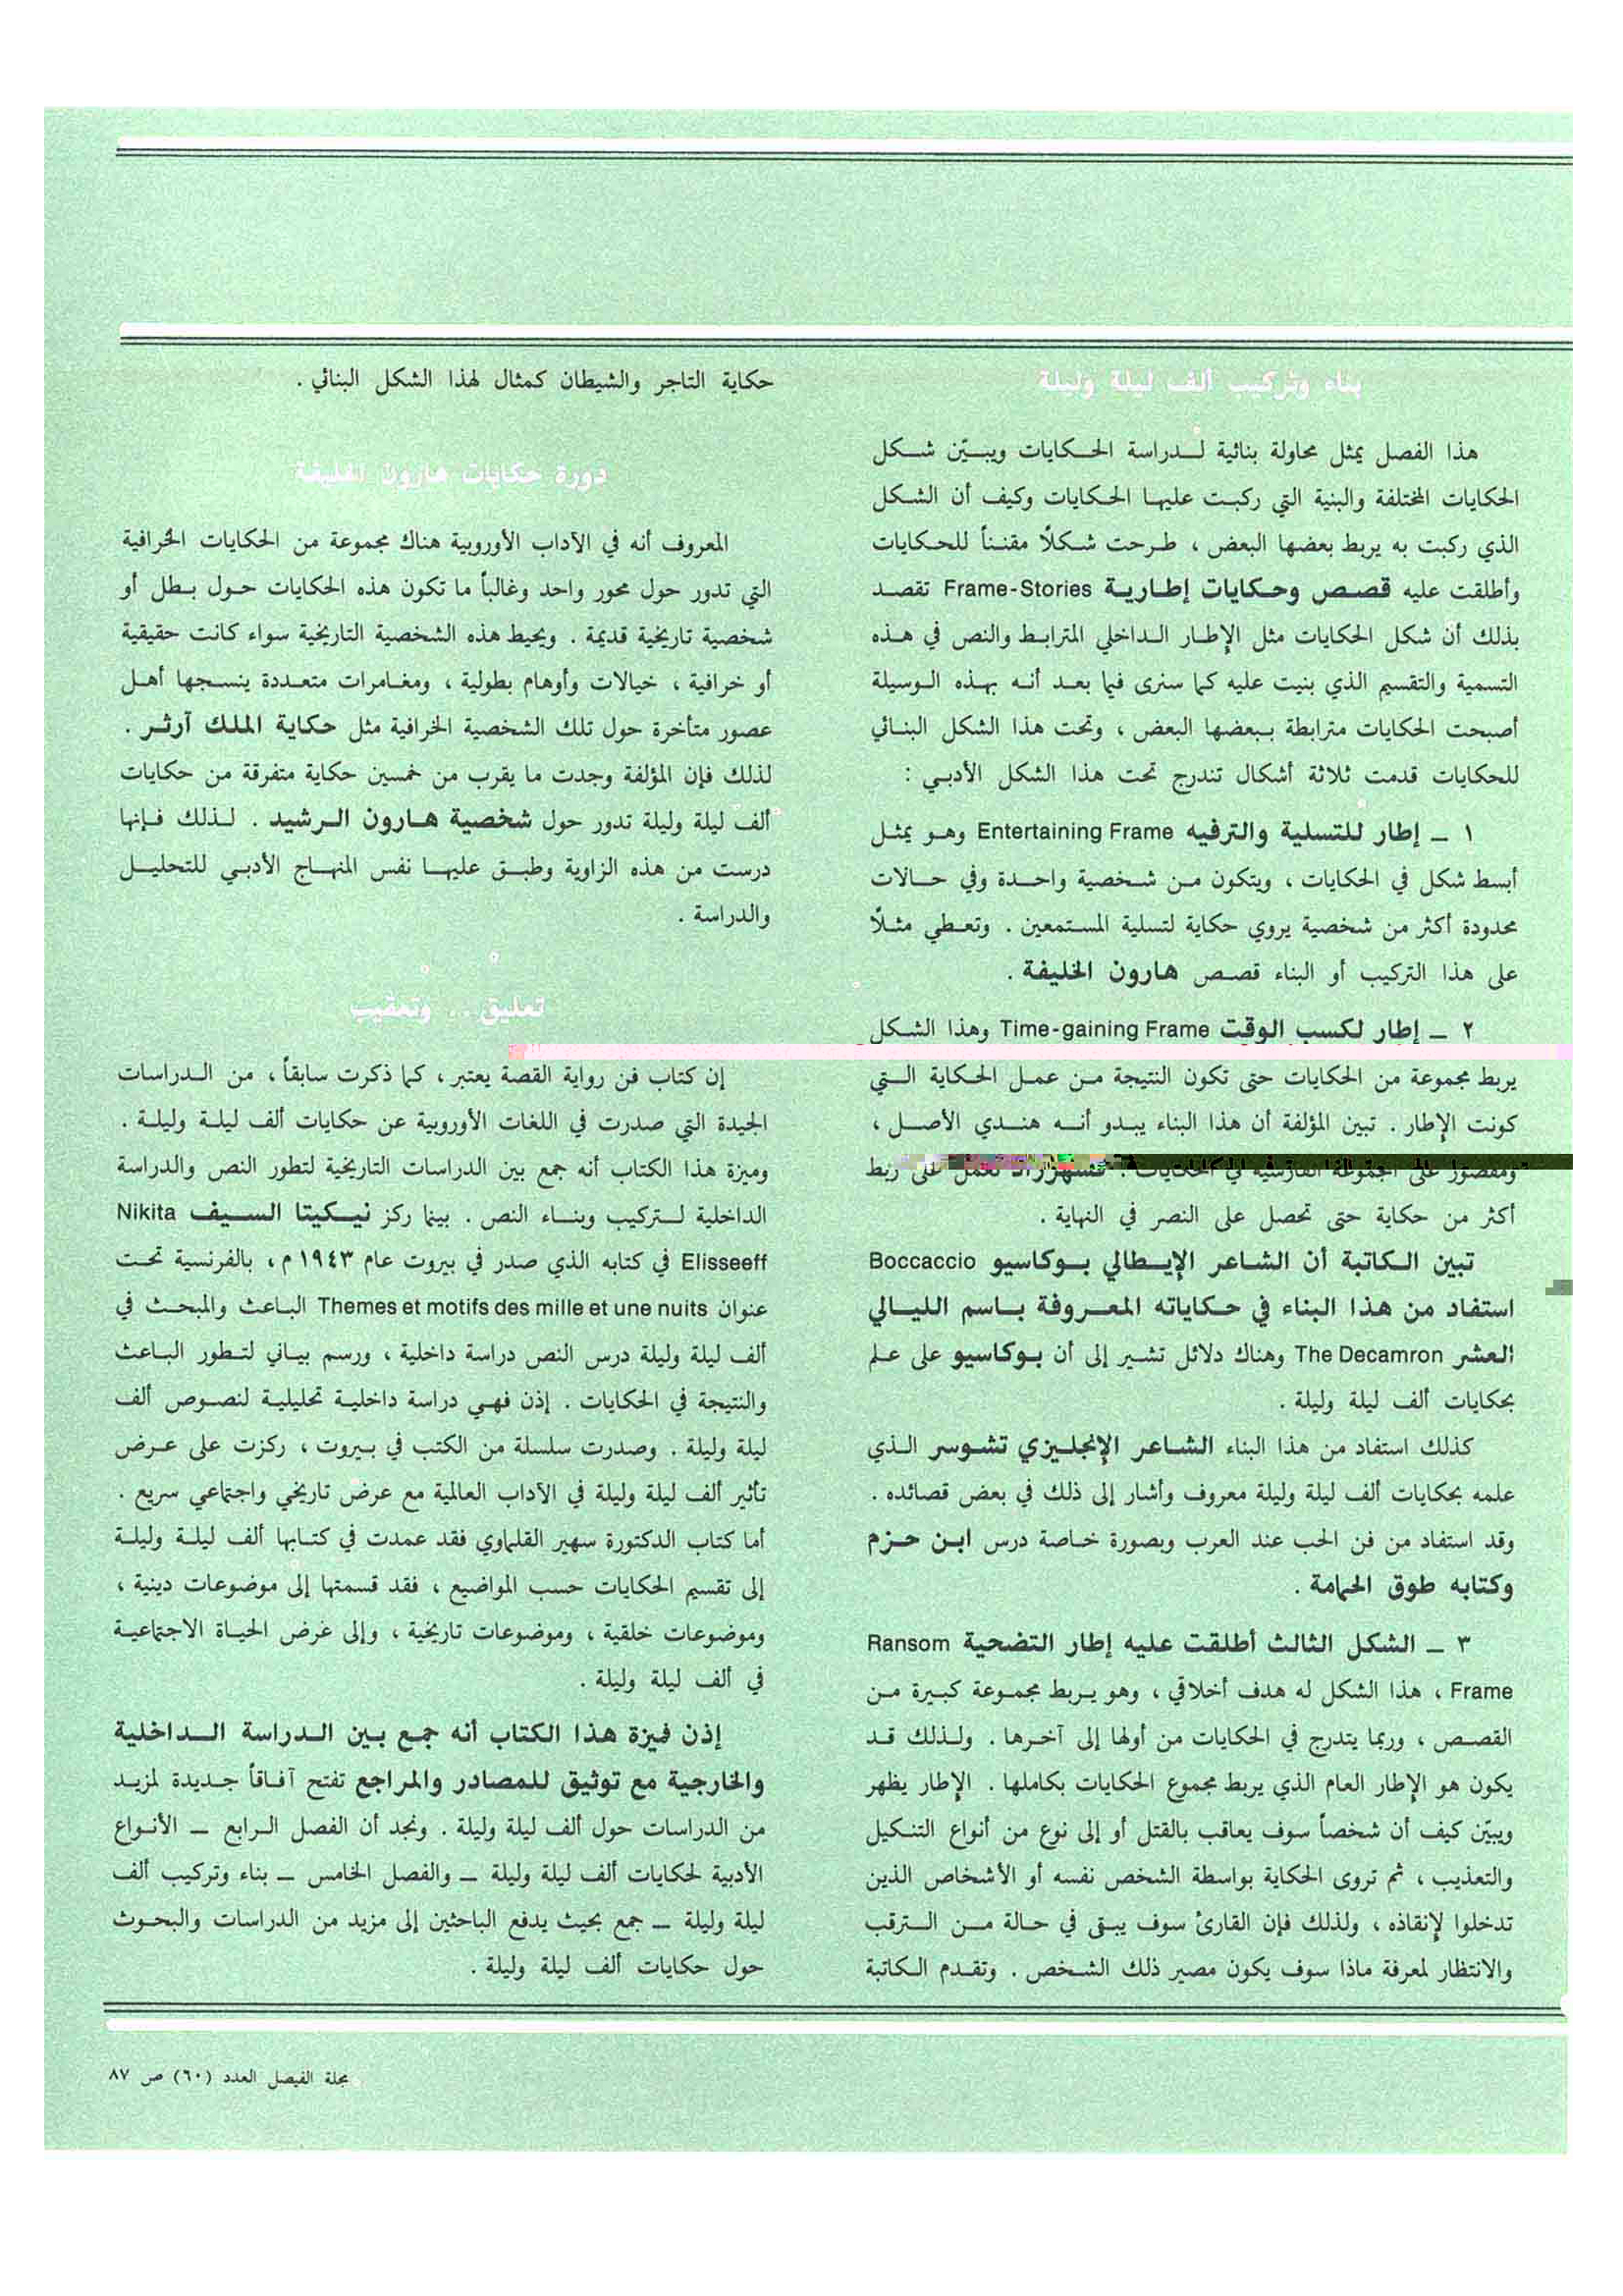 بناء وتركيب ألف ليلة وليلة
هذا الفصل يمثل محاولة بنائية لدراسة الحكايات ويبيّن شكل
الحكايات المختلفة والبنية التي ركبت عليها الحكايات وكيف أن الشكل
الذي ركبت به يربط بعضها البعض ، طرحت شكلاً مقنناً للحكايات
وأطلقت عليه قصص وحكايات إطارية Frame-Stories تقصد
بذلك أن شكل الحكايات مثل الإطار الداخلي المترابط والنص في هذه
التسمية والتقسيم الذي بنيت عليه كما سنرى فيما بعد أنه بهذه الوسيلة
أصبحت الحكايات مترابطة ببعضها البعض ، وتحت هذا الشكل البنائي
للحكايات قدمت ثلاثة أشكال تندرج تحت هذا الشكل الأدبي :
١ ـ إطار للتسلية والترفيه Entertaining Frame وهو يمثل
أبسط شكل في الحكايات ، ويتكون من شخصية واحدة وفي حالات
محدودة أكثر من شخصية يروي حكاية لتسلية المستمعين . وتعطي مثلاً
على هذا التركيب أو البناء قصص هارون الخليفة .
٢ ـ إطار لكسب الوقت Time-gaining Frame وهذا الشكل
يربط مجموعة من الحكايات حتى تكون النتيجة من عمل الحكاية التي
كونت الإطار . تبين المؤلفة أن هذا البناء يبدو أنه هندي الأصل ،
ومقصور على المجموعة الفارسية في الحكايات . فشهرزاد تعمل على ربط
أكثر من حكاية حتى تحصل على النصر في النهاية .
تبين الكاتبة أن الشاعر الإيطالي بوكاسيو Boccaccio
استفاد من هذا البناء في حكاياته المعروفة باسم الليالي
العشر The Decamron وهناك دلائل تشير إلى أن بوكاسيو على علم
بحكايات ألف ليلة وليلة .
كذلك استفاد من هذا البناء الشاعر الإنجليزي تشوسر الذي
علمه بحكايات ألف ليلة وليلة معروف وأشار إلى ذلك في بعض قصائده .
وقد استفاد من فن الحب عند العرب وبصورة خاصة درس ابن حزم
وكتابه طوق الحمامة .
٣ ـ الشكل الثالث أطلقت عليه إطار التضحية Ransom
Frame ، هذا الشكل له هدف أخلاقي ، وهو يربط مجموعة كبيرة من
القصص ، وربما يتدرج في الحكايات من أولها إلى آخرها . ولذلك قد
يكون هو الإطار العام الذي يربط مجموع الحكايات بكاملها . الإطار يظهر
ويبيّن كيف أن شخصاً سوف يعاقب بالقتل أو إلى نوع من أنواع التنكيل
والتعذيب ، ثم تروى الحكاية بواسطة الشخص نفسه أو الأشخاص الذين
تدخلوا لإنقاذه ، ولذلك فإن القارئ سوف يبقى في حالة من الترقب
والانتظار لمعرفة ماذا سوف يكون مصير ذلك الشخص . وتقدم الكاتبة
حكاية التاجر والشيطان كمثال لهذا الشكل البنائي .
دورة حكايات هارون الخليفة
المعروف أنه في الآداب الأوروبية هناك مجموعة من الحكايات الخرافية
التي تدور حول محور واحد وغالباً ما تكون هذه الحكايات حول بطل أو
شخصية تاريخية قديمة . ويحيط هذه الشخصية التاريخية سواء كانت حقيقية
أو خرافية ، خيالات وأوهام بطولية ، ومغامرات متعددة ينسجها أهل
عصور متأخرة حول تلك الشخصية الخرافية مثل حكاية الملك آرثر .
لذلك فإن المؤلفة وجدت ما يقرب من خمسين حكاية متفرقة من حكايات
ألف ليلة وليلة تدور حول شخصية هارون الرشيد . لذلك فإنها
درست من هذه الزاوية وطبق عليها نفس المنهاج الأدبي للتحليل
والدراسة .
تعليق .. وتعقيب
إن كتاب فن رواية القصة يعتبر ، كما ذكرت سابقاً ، من الدراسات
الجيدة التي صدرت في اللغات الأوروبية عن حكايات ألف ليلة وليلة .
وميزة هذا الكتاب أنه جمع بين الدراسات التاريخية لتطور النص والدراسة
الداخلية لتركيب وبناء النص . بينما ركز نيكيتا السيف Nikita
Elisseeff في كتابه الذي صدر في بيروت عام ١٩٤٣ م ، بالفرنسية تحت
عنوان Themes et motifs des mille et une nuits الباعث والمبحث في
ألف ليلة وليلة درس النص دراسة داخلية ، ورسم بياني لتطور الباعث
والنتيجة في الحكايات . إذن فهي دراسة داخلية تحليلية لنصوص ألف
ليلة وليلة . وصدرت سلسلة من الكتب في بيروت ، ركزت على عرض
تأثير ألف ليلة وليلة في الآداب العالمية مع عرض تاريخي واجتماعي سريع .
أما كتاب الدكتورة سهير القلماوي فقد عمدت في كتابها ألف ليلة وليلة
إلى تقسيم الحكايات حسب المواضيع ، فقد قسمتها إلى موضوعات دينية ،
وموضوعات خلقية ، وموضوعات تاريخية ، وإلى عرض الحياة الاجتماعية
في ألف ليلة وليلة .
إذن فميزة هذا الكتاب أنه جمع بين الدراسة الداخلية
والخارجية مع توثيق للمصادر والمراجع تفتح آفاقاً جديدة لمزيد
من الدراسات حول ألف ليلة وليلة . ونجد أن الفصل الرابع ـ الأنواع
الأدبية لحكايات ألف ليلة وليلة ـ والفصل الخامس ـ بناء وتركيب ألف
ليلة وليلة ـ جمع بحيث يدفع الباحثين إلى مزيد من الدراسات والبحوث
حول حكايات ألف ليلة وليلة .
مجلة الفيصل العدد (٦٠) ص ٨٧